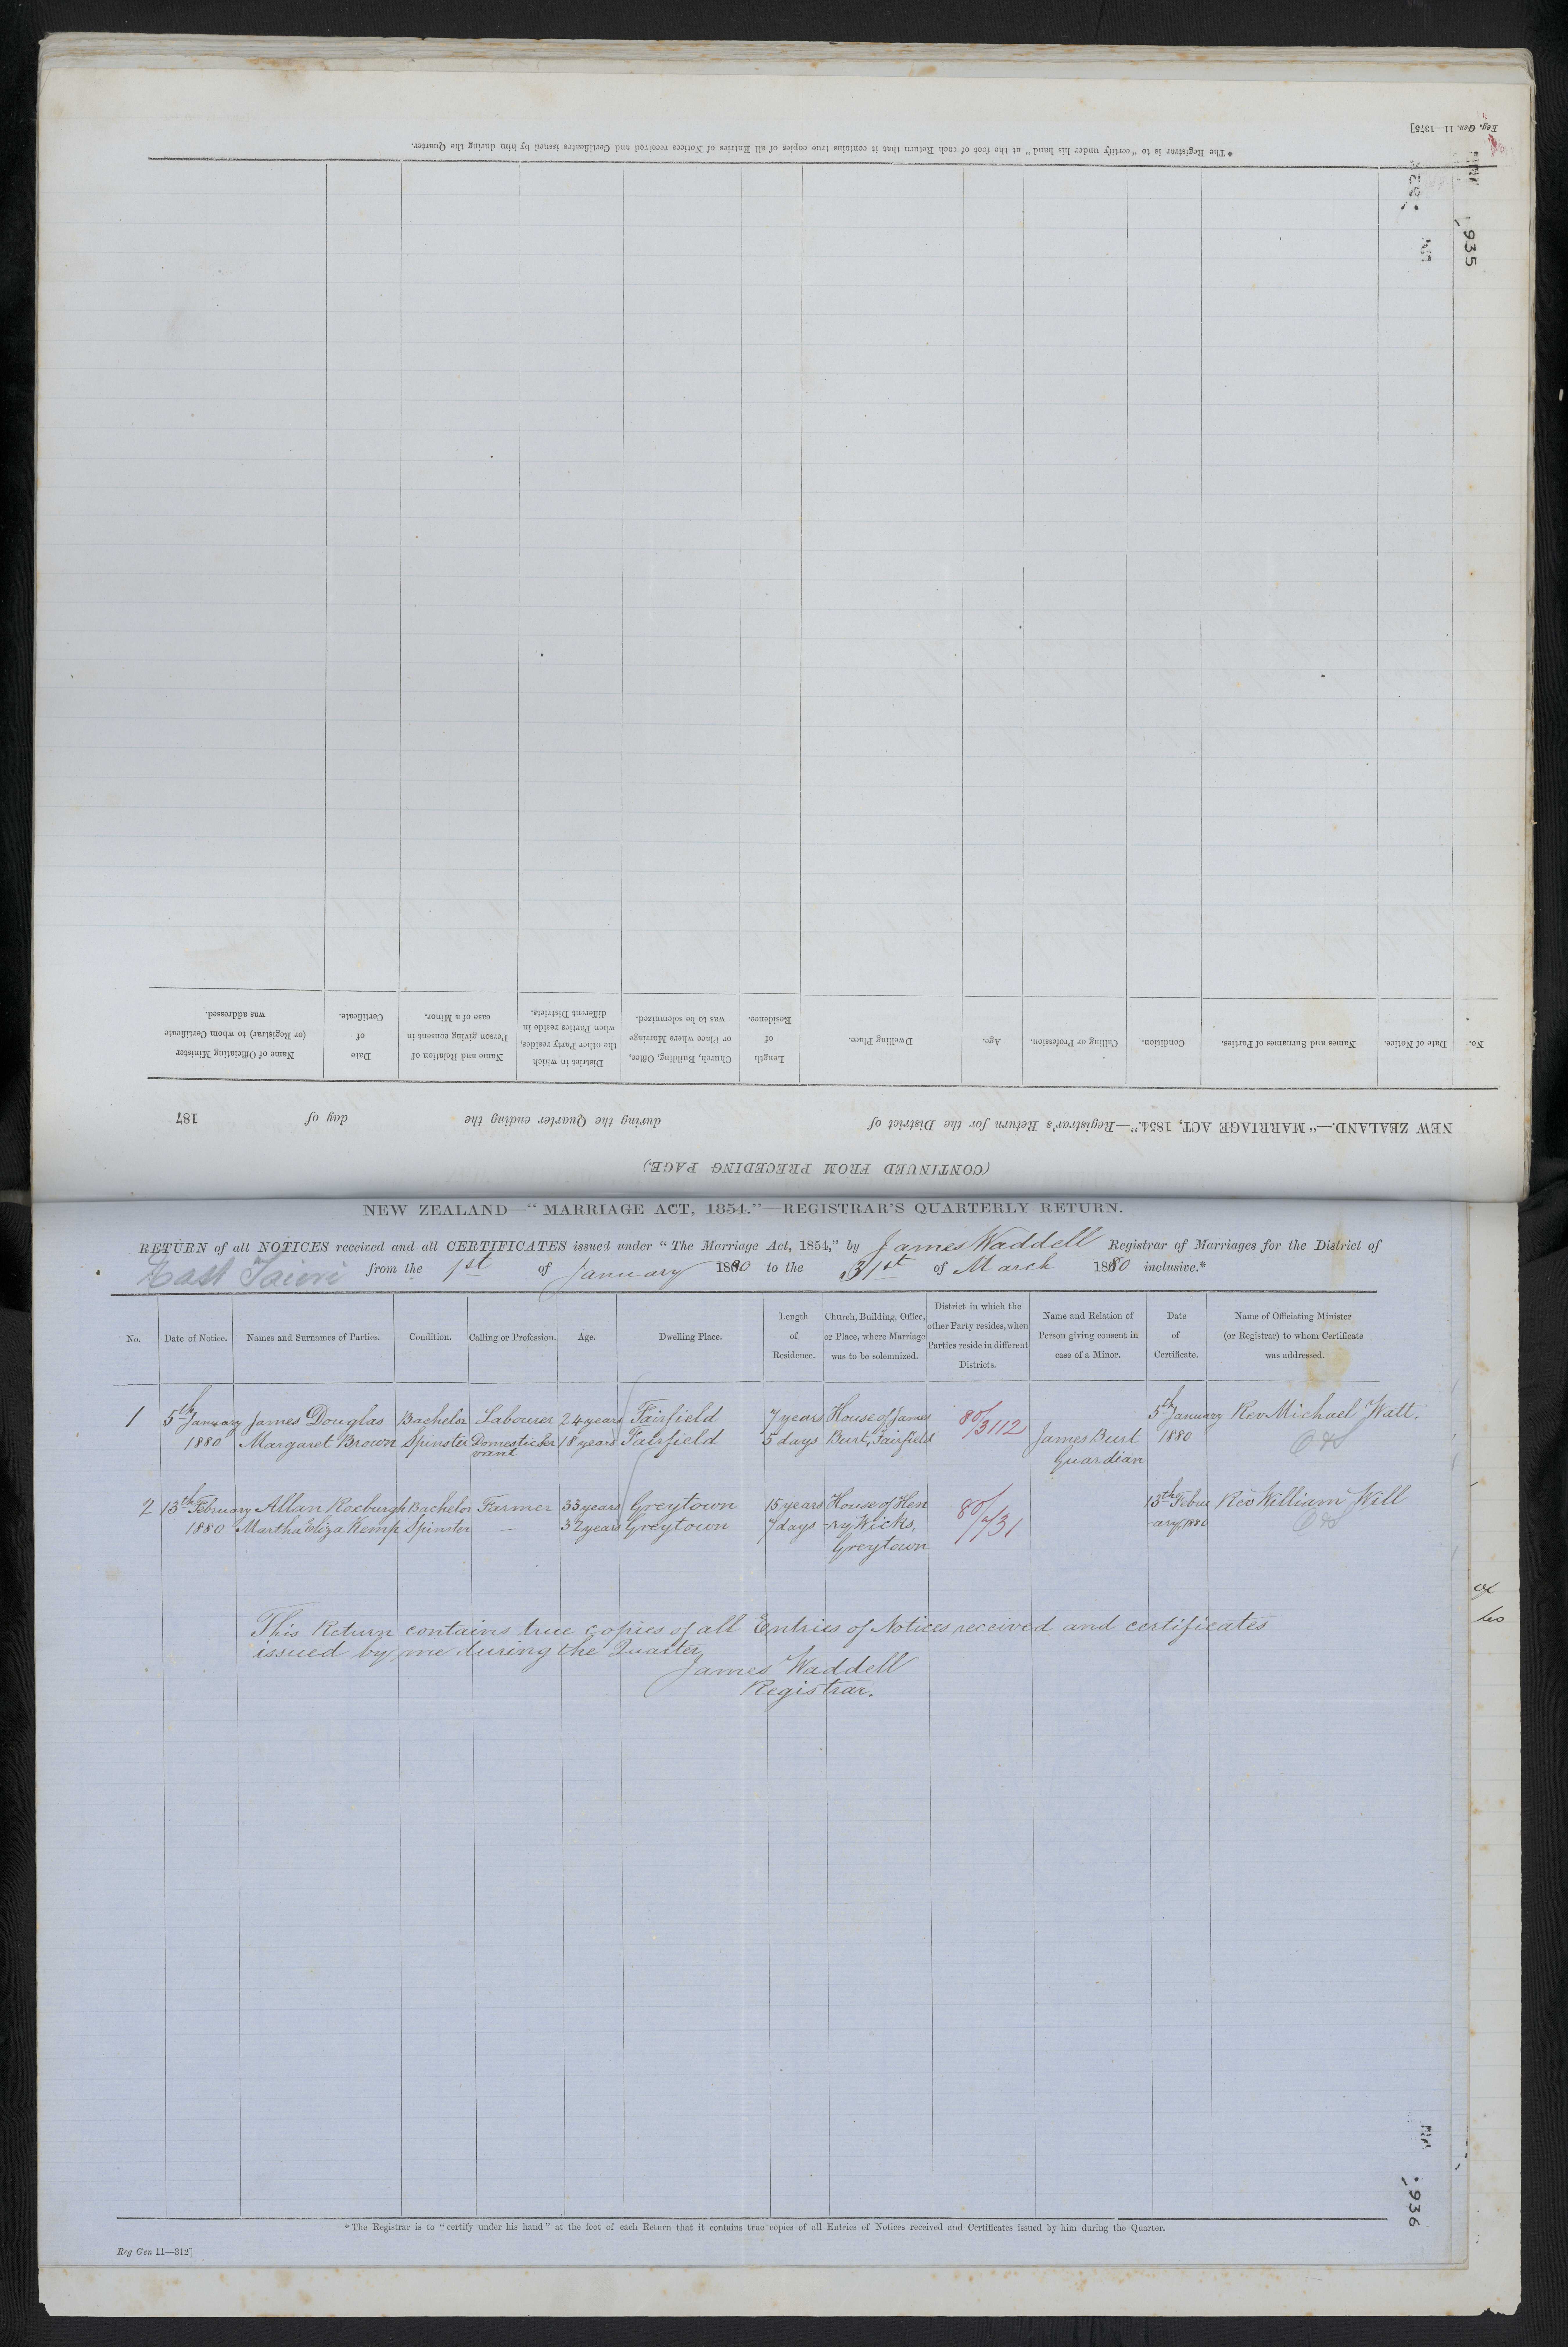 Reg. Gen. 11—1375]
*The Registrar is to "certify under his hand" at the foot of each Return that it contains true copies of all Entries of Notices received and Certificates issued by him during the Quarter.
935
(CONTINUED FROM PRECEDING PAGE.)
NEW ZEALAND.—"MARRIAGE ACT, 1854."—Registrar's Return for the District of during the Quarter ending the day of 187
No. Date of Notice. Names and Surnames of Parties. Condition. Calling or Profession. Age. Dwelling Place. Length of Residence. Church, Building, Office, or Place where Marriage was to be solemnized. District in which the other Party resides, when Parties reside in different Districts. Name and Relation of Person giving consent in case of a Minor. Date of Certificate. Name of Officiating Minister (or Registrar) to whom Certificate was addressed.
NEW ZEALAND—"MARRIAGE ACT, 1854."—REGISTRAR'S QUARTERLY RETURN.
RETURN of all NOTICES received and all CERTIFICATES issued under "The Marriage Act, 1854," by James Waddell Registrar of Marriages for the District of
East Taieri from the 1st of January 1880 to the 31st of March 1880 inclusive.*
No. Date of Notice. Names and Surnames of Parties. Condition. Calling or Profession. Age. Dwelling Place. Length of Residence. Church, Building, Office, or Place, where Marriage was to be solemnized. District in which the other Party resides, when Parties reside in different Districts. Name and Relation of Person giving consent in case of a Minor. Date of Certificate. Name of Officiating Minister (or Registrar) to whom Certificate was addressed.
1 5th January James Douglas Bachelor Labourer 24 years Fairfield 7 years House of James 80/3112 5th January Rev Michael Watt.
1880 Margaret Brown Spinster Domestic Ser 18 years Fairfield 5 days Burt, Fairfield James Burt 1880
vant Guardian
2 13th February Allan Roxburgh Bachelor Farmer 33 years Greytown 15 years House of Hen 80/431 13th Febru Rev William Will
1880 Martha Eliza Kemp Spinster — 32 years Greytown 7 days -ry Wicks, -ary, 1880
Greytown
This Return contains true copies of all Entries of Notices received and certificates
issued by me during the Quarter
James Waddell
Registrar.
936
*The Registrar is to "certify under his hand" at the foot of each Return that it contains true copies of all Entries of Notices received and Certificates issued by him during the Quarter.
Reg Gen 11—312]